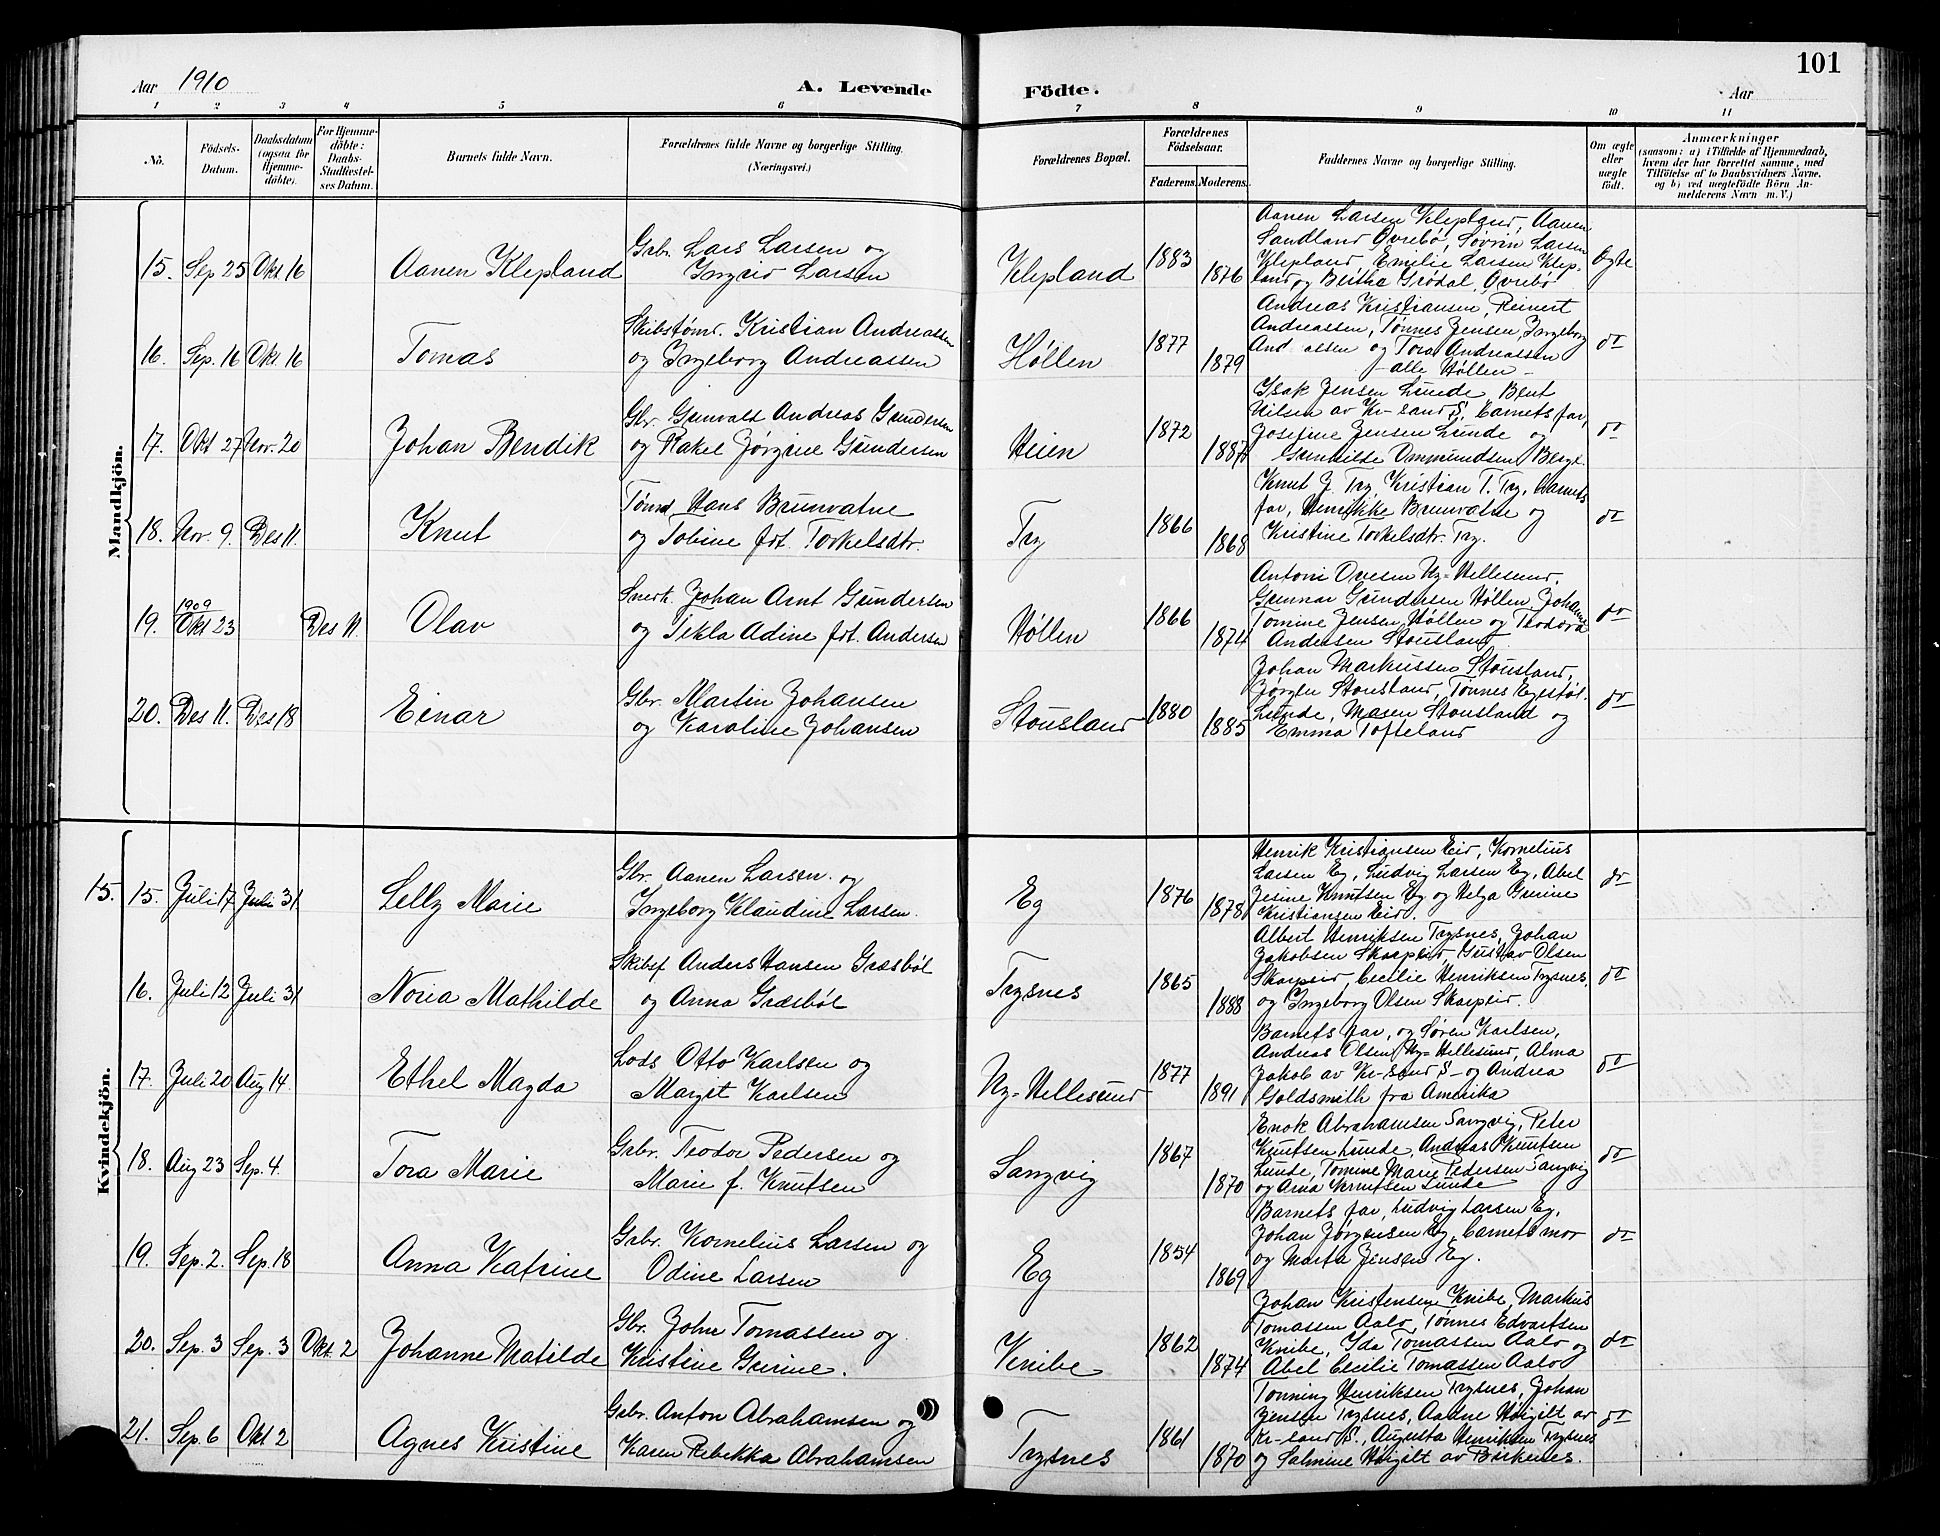 101
Aar 1910
A. Levende Födte.
Aar
1 2 3 4 5 6 7 8 9 10 11
No.
Födsels-
Datum.
Daabsdatum
(ogsaa for
Hjemme-
döbte).
For Hjemme-
döbte:
Daabs-
Stadfæstel-
ses Datum.
Barnets fulde Navn.
Forældrenes fulde Navne og borgerlige Stilling.
(Næringsvei.)
Forældrenes Bopæl.
Forældrenes
Födselsaar.
Faderens. Moderens.
Faddernes Navne og borgerlige Stilling.
Om ægte
eller
uægte
født.
Anmærkninger
(saasom: a) i Tilfælde af Hjemmedaab,
hvem der har forrettet samme, med
Tilføielse af to Daabsvidners Navne,
og b) ved uægtefödte Börn An-
melderens Navn m. V.)
Mandkjön.
15. Sep 25 Okt 16 Aanen Klepland
Grbr. Lars Larsen og
Ingvid Larsen
Klepland 1883 1876
Aanen Larsen Klepland, Aanen
Sandland Øvrebø, Søvrin Larsen
Klepland Emilie Larsen Klep-
land og Bertha Grødal, Øvrebø
Ægte
16. Sep. 16 Okt. 16 Tomas
Skibstømr. Kristian Andreassen
og Ingeborg Andreassen
Høllen 1877 1879
Andreas Kristiansen, Reinert
Andreassen, Tønnes Jensen, Ingeborg
Andreassen og Tora Andreassen
- alle Høllen -
do
17. Okt 27 Nov. 20 Johan Bendik
Gbr. Gunvald Andreas Gundersen
og Rakel Jørgine Gundersen
Heien 1872 1887
Isak Jensen Lunde, Bent
Nilsen av Kr-sand S. Barnets far,
Josefine Jensen Lunde og
Gunhilde Ommundsen Berge.
do
18. Nov. 9. Des 11. Knut
Tømd. Hans Brunvatne
og Tobine fdt. Torkelsdtr.
Try 1866 1868
Knut J. Try, Kristian T. Try, barnets
far, Henrikke Brunvatne og
Kristine Torkelsdtr. Try.
do
19. 1909
Okt 23 Des 11. Olav
Snedk. Johan Arnt Gundersen
og Tekla Adine fdt. Andersen
Høllen 1866 1874
Antoni Ovesen Ny-Hellesund.
Gunnar Gundersen Høllen, Johanne
Tomine Jensen Høllen og Teodora
Andersen Stousland
do
20. Des 11. Des 18 Einar
Gbr. Martin Johansen
og Karoline Johansen
Stousland 1880 1885
Johan Markussen Stousland,
Jørgen Stousland, Tønnes Egestøl
Lunde, Maren Stousland og
Emma Tofteland
do
Kvindekjön.
15. 15. Juli 17 Juli 31. Lelly Marie
Gbr. Aanen Larsen og
Ingeborg Klaudine Larsen.
Eg 1876 1878
Henrik Kristiansen Eid, Kornelius
Larsen Eg, Ludvig Larsen Eg, Abel
Jesine Knutsen Eg og Helga Gurine
Kristiansen Eid.
do
16. Juli 12 Juli 31 Nora Mathilde
Skibsf Anders Hansen Græsbøl
og Anna Græsbøl
Trysnes 1865 1888
Albert Henriksen Trysnes, Johan
Jakobsen Skarpeid, Gustav Olsen
Skarpeid, Cecilie Henriksen Trysnes,
og Ingeborg Olsen Skarpeid.
do
17. Juli 20 Aug 14. Ethel Magda
Lods Otto Karlsen og
Margit Karlsen
Ny-Hellesund 1877 1891
Barnets far, og Søren Karlsen,
Andreas Olsen Ny-Hellesund, Alma
Jakob av Kr-sand S- og Andrea
Goldsmith fra Amerika
do
18. Aug 23 Sep. 4. Tora Marie
Grbr. Teodor Pedersen og
Marie f. Knutsen
Sangvig 1867 1870
Enok Abrahamsen Sangvig, Peter
Knutsen Lunde, Andreas Knutsen
Lunde, Tomine Marie Pedersen Sangvig
og Anna Knutsen Lunde
do
19. Sep. 2. Sep. 18 Anna Katrine
Grbr. Kornelius Larsen og
Odine Larsen
Eg 1854 1869
Barnets far, Ludvig Larsen Eg,
Johan Jørgensen Eg, barnets mor
og Marta Jensen Eg.
do
20. Sep. 3 Sep. 3 Okt. 2 Johanne Matilde
Gbr. John Tomassen og
Kristine Gurine.
Knibe 1862 1874
Johan Kristensen Knibe, Markus
Tomassen Aalo, Tønnes Edvartsen
Knibe, Ida Tomassen Aalo og
Abel Cecilie Tomassen Aalo
do
21. Sep. 6 Okt 2 Agnes Kristine
Grbr. Anton Abrahamsen og
Karen Rebekka Abrahamsen
Trysnes 1861 1870
Tønning Henriksen Trysnes, Johan
Jensen Trysnes, Aadne Høigilt av
Kr-sand S., Augusta Henriksen Trysnes
og Salmine Høigilt av Birkenes.
do